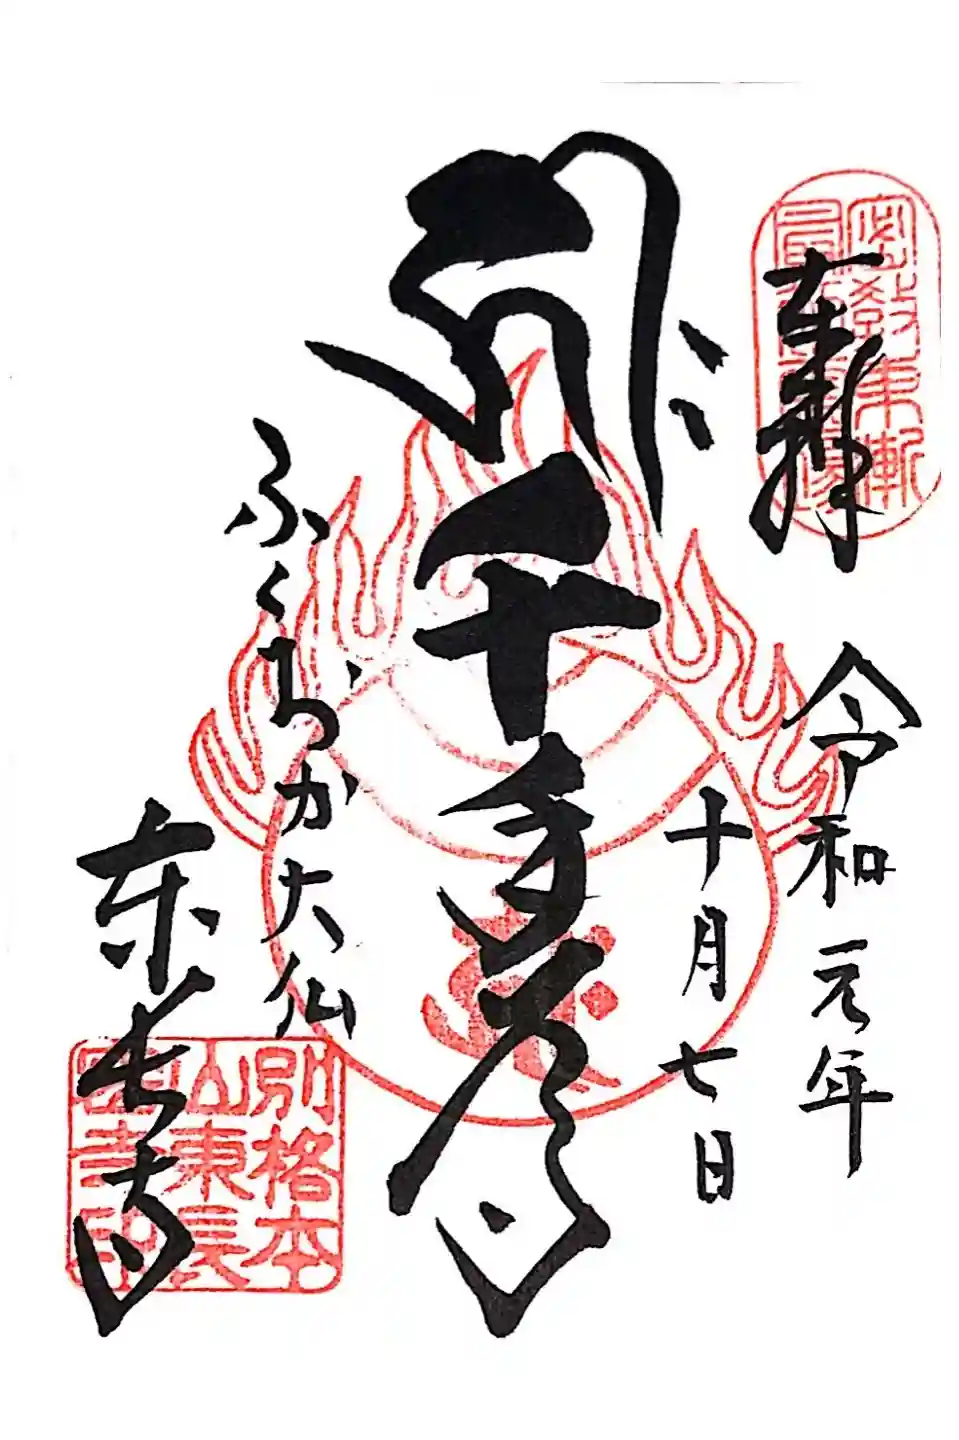 奉拝
令和元年
十月七日
千手尊
ふくおか大仏
東長寺
密教東漸
別格本
山東長
密寺印